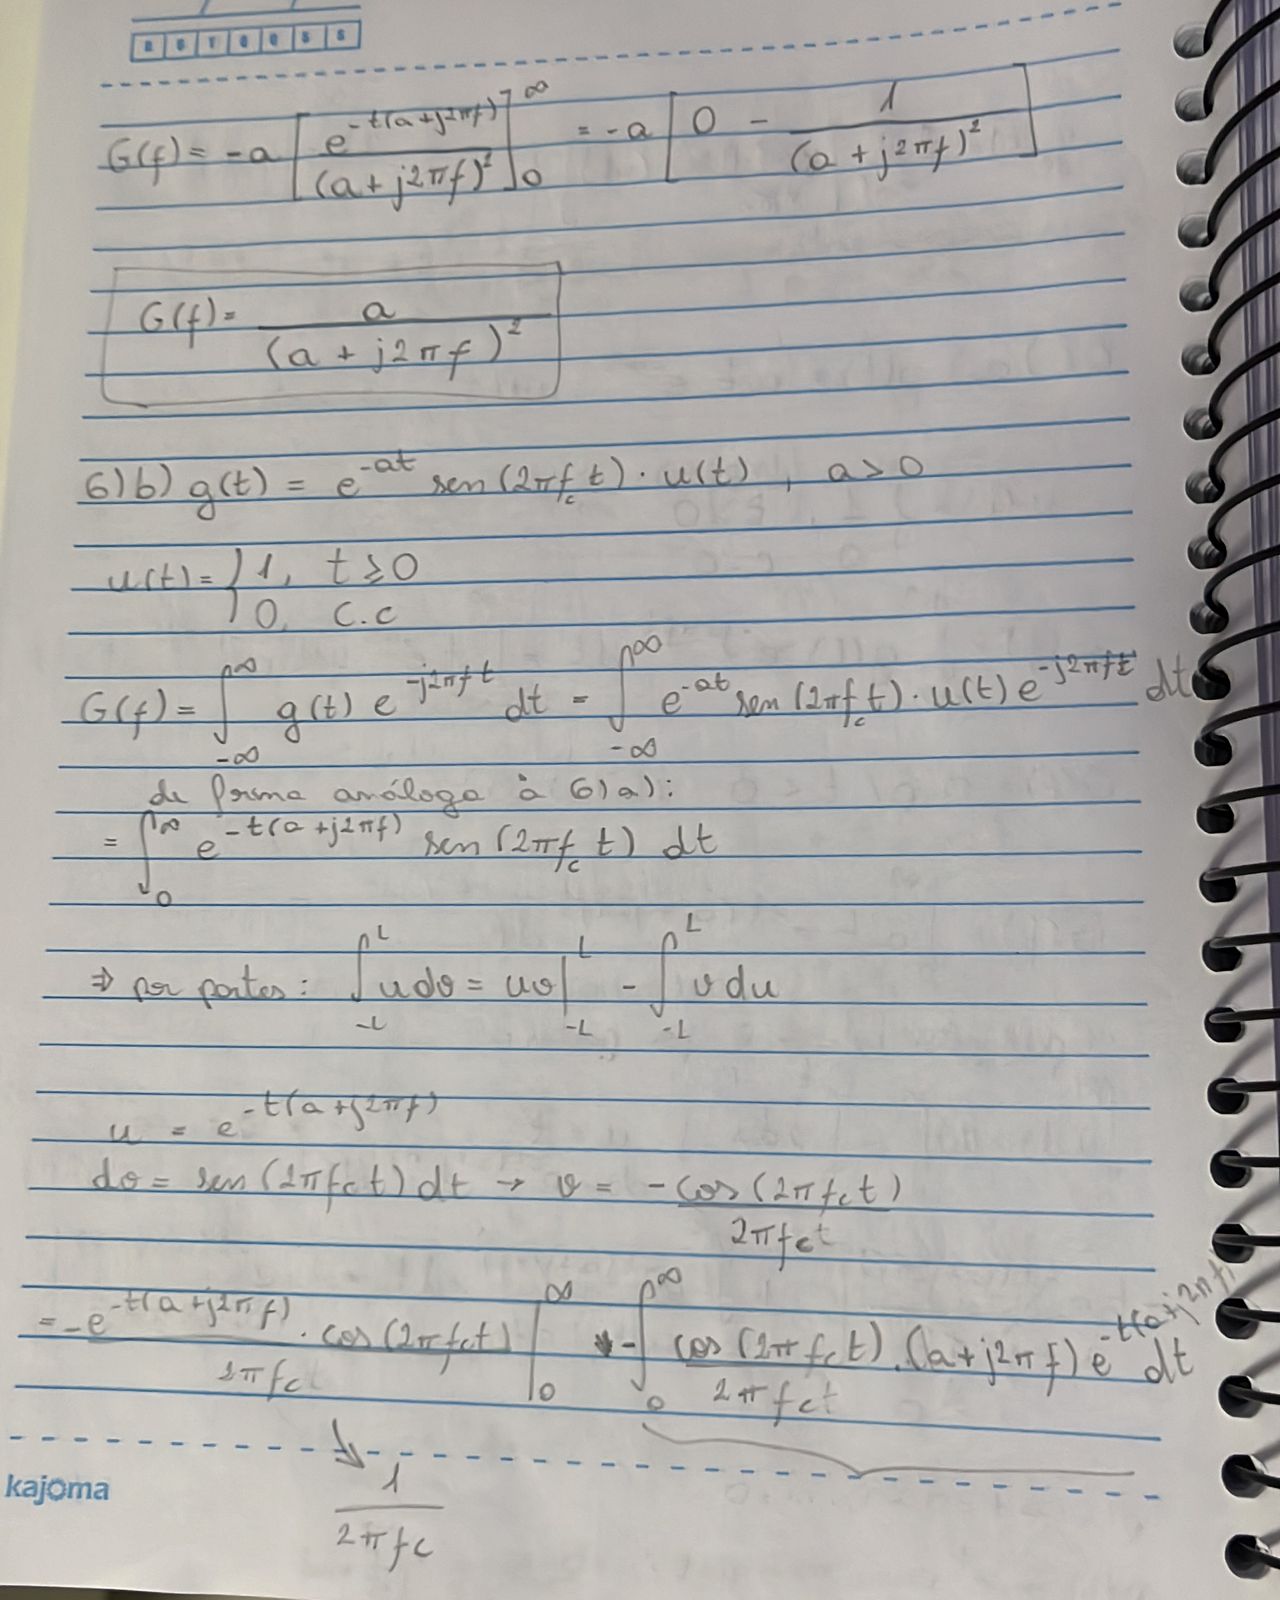 G(f) = -a [ e^{-t(a+j2πf)} / (a+j2πf)² ]₀^∞ = -a [ 0 - 1 / (a+j2πf)² ]
G(f) = a / (a + j2πf)²
6)b) g(t) = e^{-at} sen(2πf_c t) · u(t), a > 0
u(t) = { 1, t ≥ 0
0, c.c
G(f) = ∫_{-∞}^{∞} g(t) e^{-j2πft} dt = ∫_{-∞}^{∞} e^{-at} sen(2πf_c t) · u(t) e^{-j2πft} dt
de forma análoga à 6)a):
= ∫_0^∞ e^{-t(a+j2πf)} sen(2πf_c t) dt
⇒ por partes: ∫_{-L}^{L} u dv = uv |_{-L}^{L} - ∫_{-L}^{L} v du
u = e^{-t(a+j2πf)}
dv = sen(2πf_c t) dt → v = -cos(2πf_c t) / 2πf_c t
= -e^{-t(a+j2πf)} / 2πf_c · cos(2πf_c t) |_0^∞ - ∫_0^∞ cos(2πf_c t) / 2πf_c t · (a+j2πf) e^{-t(a+j2πf)} dt
1 / 2πf_c
kajoma